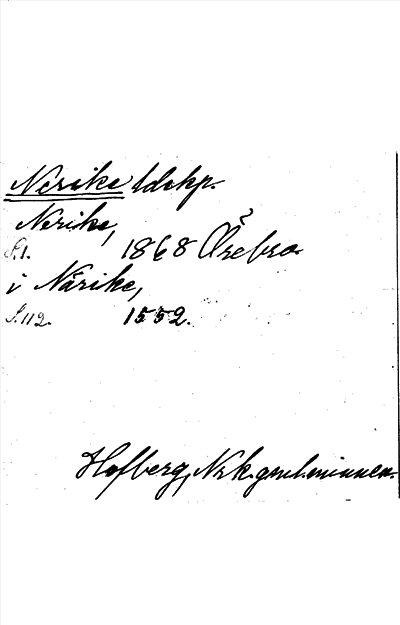 Nerike ldskp.
Nerike,
S.1. 1868 Örebro
i Närike,
S.112. 1552.
Hofberg, Nrk. gml. minnen.